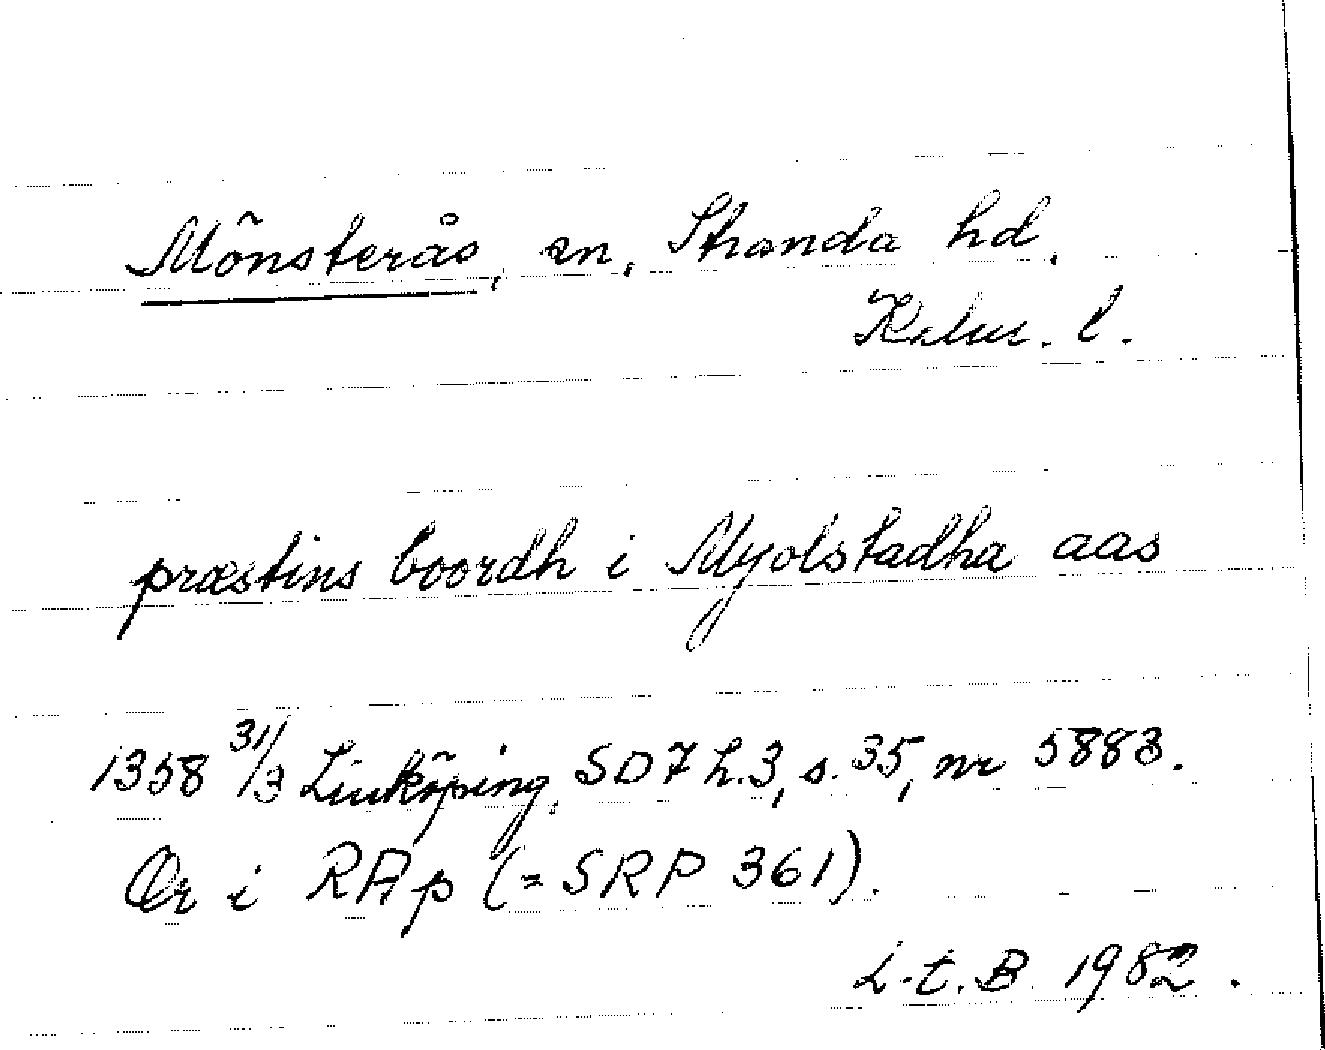 Mönsterås, sn, Stranda hd,
Kalm. l.
præstins boordh i Myolstadha aas
1358 31/3 Linköping, SD 7 h.3, s. 35, nr 5883.
Or i RAp (= SRP 361).
L.t.B 1982.